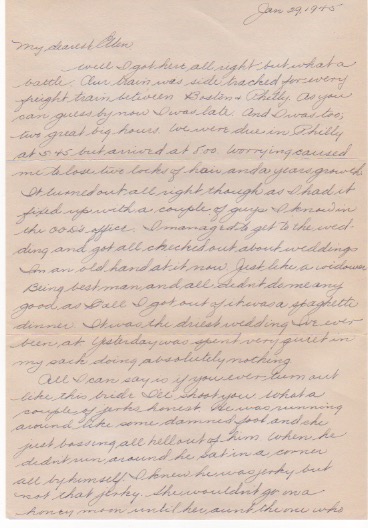 Jan 29, 1945
My dearest Ellen
Well I got here all right but what a
battle. Our train was side tracked for every
freight train between Boston & Philly. As you
can guess by now I was late. And I was too,
two great big hours. We were due in Philly
at 5:45 but arrived at 8:00. Worrying caused
me to lose two locks of hair and a years growth
It turned out all right though as I had it
fixed up with a couple of guys I know in
the OOD's office. I managed to get to the wed-
ding and got all checked out about weddings
I'm an old hand at it now. Just like a widower
Being best man and all didn't do me any
good as all I got out of it was a spaghetti
dinner. It was the driest wedding I've ever
been at. Yesterday was spent very quiet in
my sack doing absolutely nothing
All I can say is if you ever turn out
like this bride I'll shoot you. What a
couple of jerks honest. He was running
around like some damned fool and she
just bossing all hell out of him. When he
didn't run around he sat in a corner
all by himself. I knew he was jerky but
not that jerky. She wouldn't go on a
honey moon until her aunt the one who